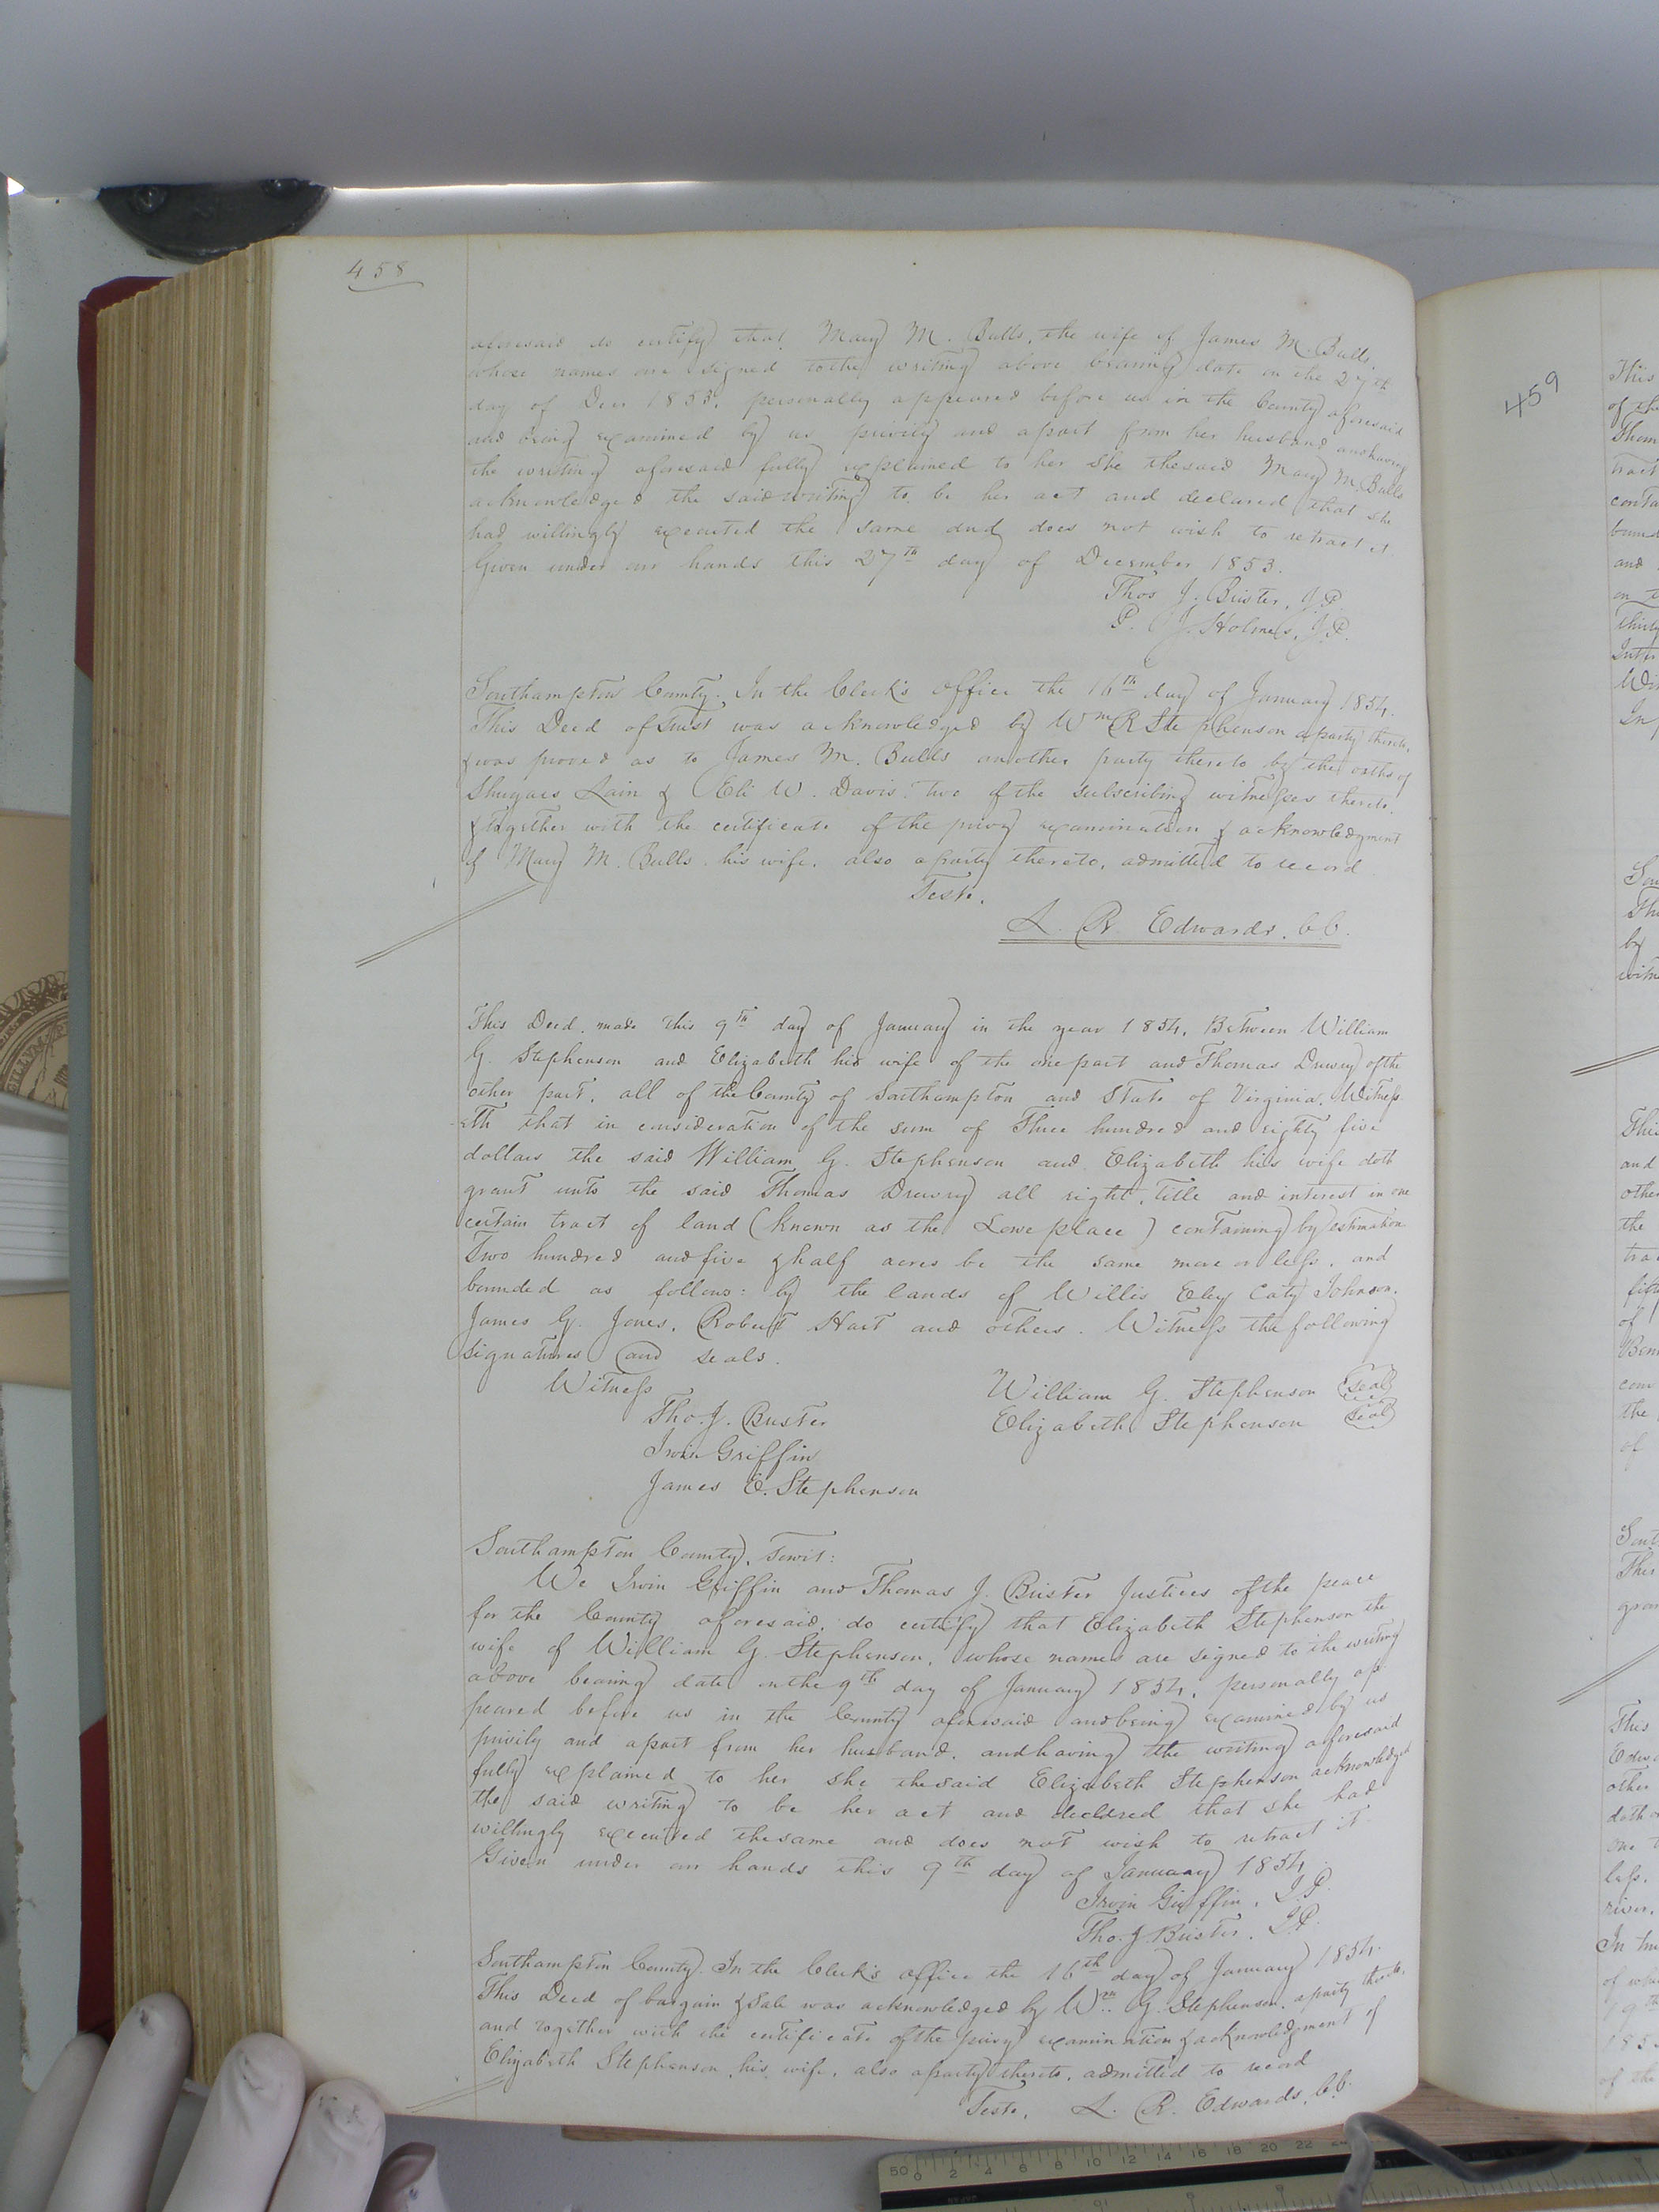 458
aforesaid do certify that Mary M. Bulls, the wife of James M. Bulls,
whose names are signed to the writing above bearing date on the 27th
day of Decr 1853, personally appeared before us in the County aforesaid
and being examined by us privily and apart from her husband and having
the writing aforesaid fully explained to her she the said Mary M. Bulls
acknowledged the said writing to be her act and declared that she
had willingly executed the same and does not wish to retract it.
Given under our hands this 27th day of December 1853.
Thos J. Buster, J.P.
P. J. Holmes, J.P.
Southampton County. In the Clerk's office the 16th day of January 1854.
This Deed of Trust was acknowledged by Wm R Stephenson a party thereto,
& was proved as to James M. Bulls another party thereto by the oaths of
Shugars Lain & Eli W. Davis two of the subscribing witnesses thereto,
& together with the certificate of the privy examination & acknowledgment
of Mary M. Bulls his wife, also a party thereto, admitted to record
Teste.
L. R. Edwards, C.C.
This Deed, made this 9th day of January in the year 1854, Between William
G. Stephenson and Elizabeth his wife of the one part and Thomas Drewry of the
other part, all of the County of Southampton and State of Virginia, Witness-
-eth that in consideration of the sum of Three hundred and eighty five
dollars the said William G. Stephenson and Elizabeth his wife doth
grant unto the said Thomas Drewry all right, title and interest in one
certain tract of land (known as the Lowe place) containing by estimation
Two hundred and five & half acres be the same more or less, and
bounded as follows: by the lands of Willis Eley Caty Johnson,
James G. Jones, Robert Hart and others. Witness the following
signatures and seals.
Witness
William G. Stephenson (seal)
Tho. J. Buster
Elizabeth Stephenson (seal)
Irwin Griffin
James E. Stephenson
Southampton County, Towit:
We Irvin Griffin and Thomas J. Buster Justices of the peace
for the County aforesaid, do certify that Elizabeth Stephenson the
wife of William G. Stephenson, whose names are signed to the writing
above bearing date on the 9th day of January 1854, personally ap
peared before us in the County aforesaid and being examined by us
privily and apart from her husband, and having the writing aforesaid
fully explained to her she the said Elizabeth Stephenson acknowledged
the said writing to be her act and declared that she had
willingly executed the same and does not wish to retract it.
Given under our hands this 9th day of January 1854
Irvin Griffin, J.P.
Tho. J. Buster, J.P.
Southampton County. In the Clerk's office the 16th day of January 1854.
This Deed of bargain & Sale was acknowledged by Wm. G. Stephenson, a party thereto,
and together with the certificate of the privy examination & acknowledgment of
Elizabeth Stephenson, his wife, also a party thereto, admitted to record
Teste, L. R. Edwards, C.C.
459
This
of the
tract
and
This
and
other
the
of
com
the
of
This
other
less,
river,
50 0 2 4 6 8 10 12 14 16 18 20 22